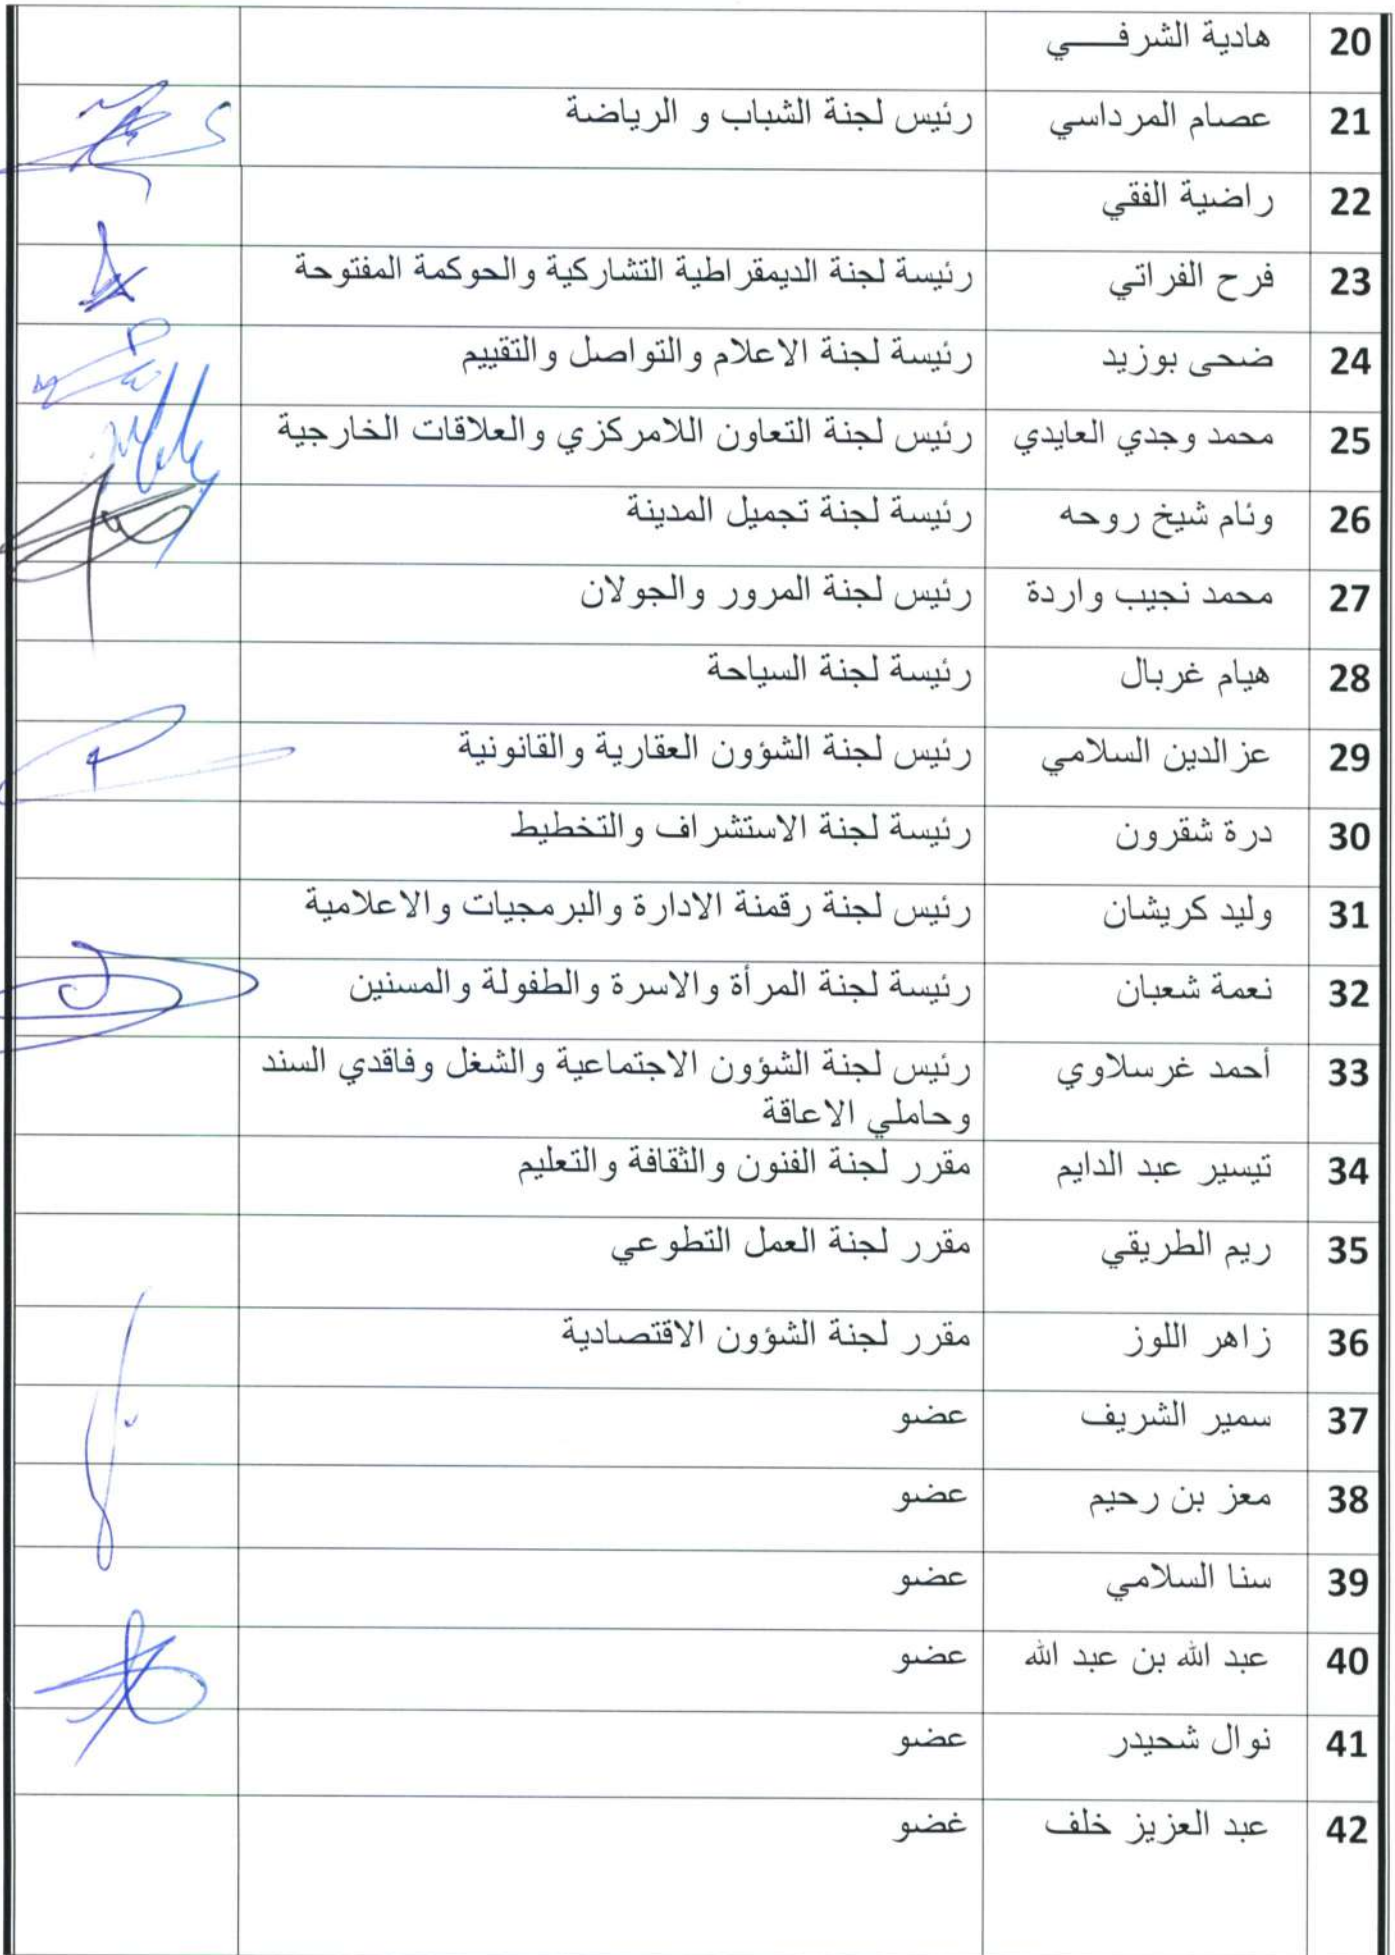 20 هادية الشرفـــي
21 عصام المرداسي رئيس لجنة الشباب و الرياضة
22 راضية الفقي
23 فرح الفراتي رئيسة لجنة الديمقراطية التشاركية والحوكمة المفتوحة
24 ضحى بوزيد رئيسة لجنة الاعلام والتواصل والتقييم
25 محمد وجدي العايدي رئيس لجنة التعاون اللامركزي والعلاقات الخارجية
26 وئام شيخ روحه رئيسة لجنة تجميل المدينة
27 محمد نجيب واردة رئيس لجنة المرور والجولان
28 هيام غربال رئيسة لجنة السياحة
29 عزالدين السلامي رئيس لجنة الشؤون العقارية والقانونية
30 درة شقرون رئيسة لجنة الاستشراف والتخطيط
31 وليد كريشان رئيس لجنة رقمنة الادارة والبرمجيات والاعلامية
32 نعمة شعبان رئيسة لجنة المرأة والاسرة والطفولة والمسنين
33 أحمد غرسلاوي رئيس لجنة الشؤون الاجتماعية والشغل وفاقدي السند
وحاملي الاعاقة
34 تيسير عبد الدايم مقرر لجنة الفنون والثقافة والتعليم
35 ريم الطريقي مقرر لجنة العمل التطوعي
36 زاهر اللوز مقرر لجنة الشؤون الاقتصادية
37 سمير الشريف عضو
38 معز بن رحيم عضو
39 سنا السلامي عضو
40 عبد الله بن عبد الله عضو
41 نوال شحيدر عضو
42 عبد العزيز خلف غضو